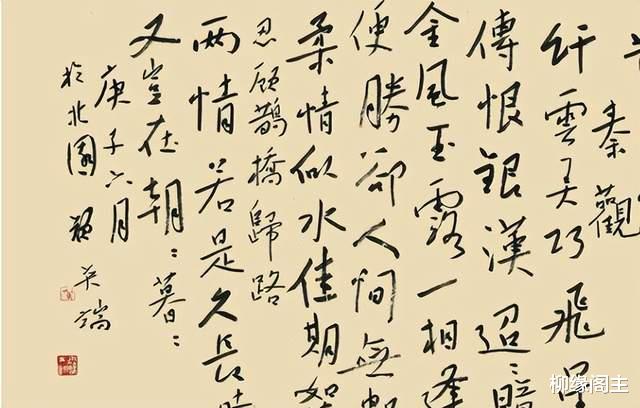 秦觀
纤雲弄巧飛星
傳恨銀漢迢〻暗
金風玉露一相逢
便勝卻人間無數
柔情似水佳期如
忍顧鵲橋歸路
两情若是久長時
又豈在朝〻暮〻
庚子六月
於北園
柳缘阁主